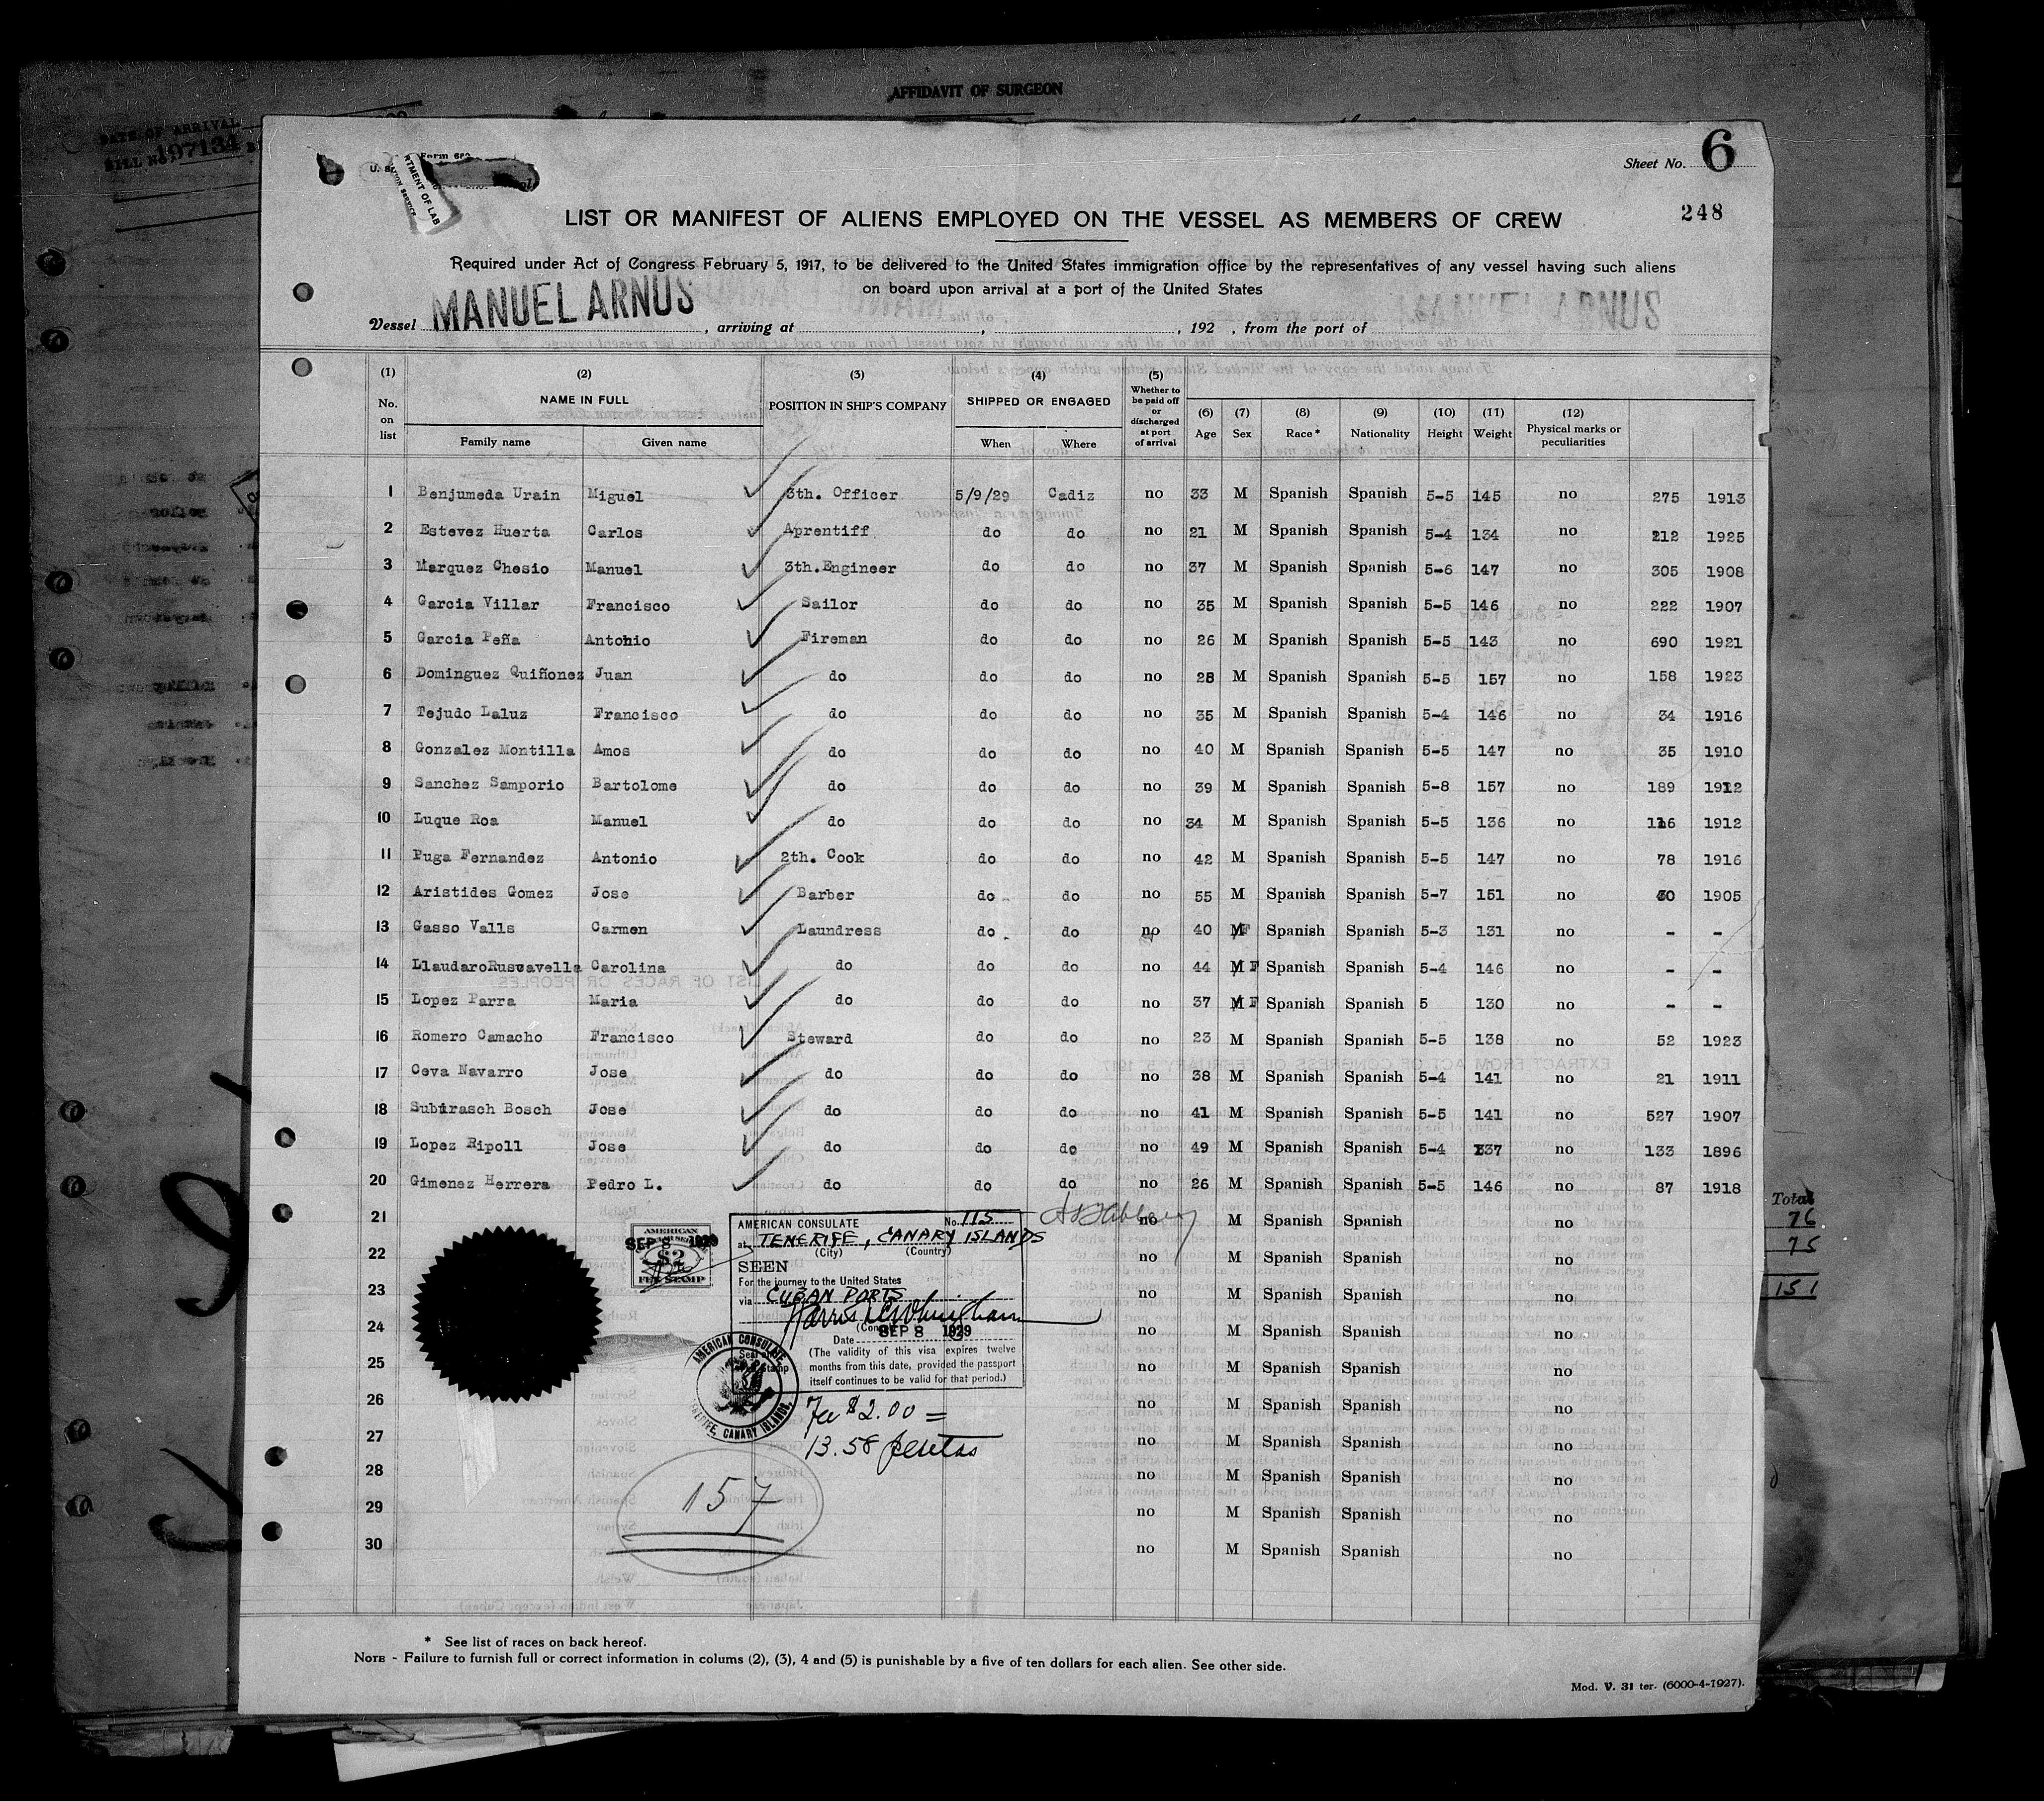 AFFIDAVIT OF SURGEON
DATE OF ARRIVAL
BILL NO. 197134
Form 680
U. S.
RTMENT OF LAB
Sheet No. 6
248
LIST OR MANIFEST OF ALIENS EMPLOYED ON THE VESSEL AS MEMBERS OF CREW
Required under Act of Congress February 5, 1917, to be delivered to the United States immigration office by the representatives of any vessel having such aliens
on board upon arrival at a port of the United States
Vessel MANUEL ARNUS , arriving at , , 192 , from the port of
(1) No. on list (2) NAME IN FULL Family name Given name (3) POSITION IN SHIP'S COMPANY (4) SHIPPED OR ENGAGED When Where (5) Whether to be paid off or discharged at port of arrival (6) Age (7) Sex (8) Race * (9) Nationality (10) Height (11) Weight (12) Physical marks or peculiarities
1 Benjumeda Urain Miguel 3th. Officer 5/9/29 Cadiz no 33 M Spanish Spanish 5-5 145 no 275 1913
2 Estevez Huerta Carlos Aprentiff do do no 21 M Spanish Spanish 5-4 134 no 212 1925
3 Marquez Chesio Manuel 3th. Engineer do do no 37 M Spanish Spanish 5-6 147 no 305 1908
4 Garcia Villar Francisco Sailor do do no 35 M Spanish Spanish 5-5 146 no 222 1907
5 Garcia Peña Antonio Fireman do do no 26 M Spanish Spanish 5-5 143 no 690 1921
6 Dominguez Quiñonez Juan do do do no 28 M Spanish Spanish 5-5 157 no 158 1923
7 Tejudo Laluz Francisco do do do no 35 M Spanish Spanish 5-4 146 no 34 1916
8 Gonzalez Montilla Amos do do do no 40 M Spanish Spanish 5-5 147 no 35 1910
9 Sanchez Samporio Bartolome do do do no 39 M Spanish Spanish 5-8 157 no 189 1912
10 Luque Roa Manuel do do do no 34 M Spanish Spanish 5-5 136 no 116 1912
11 Puga Fernandez Antonio 2th. Cook do do no 42 M Spanish Spanish 5-5 147 no 78 1916
12 Aristides Gomez Jose Barber do do no 55 M Spanish Spanish 5-7 151 no 30 1905
13 Gasso Valls Carmen Laundress do do no 40 F Spanish Spanish 5-3 131 no - -
14 LlaudaroRusvavella Carolina do do do no 44 M F Spanish Spanish 5-4 146 no - -
15 Lopez Parra Maria do do do no 37 M F Spanish Spanish 5 130 no - -
16 Romero Camacho Francisco Steward do do no 23 M Spanish Spanish 5-5 138 no 52 1923
17 Ceva Navarro Jose do do do no 38 M Spanish Spanish 5-4 141 no 21 1911
18 Subirasch Bosch Jose do do do no 41 M Spanish Spanish 5-5 141 no 527 1907
19 Lopez Ripoll Jose do do do no 49 M Spanish Spanish 5-4 137 no 133 1896
20 Gimenez Herrera Pedro L. do do do no 26 M Spanish Spanish 5-5 146 no 87 1918
21 no M Spanish Spanish no
22 no M Spanish Spanish no
23 no M Spanish Spanish no
24 no M Spanish Spanish no
25 no M Spanish Spanish no
26 no M Spanish Spanish no
27 no M Spanish Spanish no
28 no M Spanish Spanish no
29 no M Spanish Spanish no
30 no M Spanish Spanish no
AMERICAN
SEP 8 1929
$2
FEE STAMP
AMERICAN CONSULATE No. 115
at TENERIFE, CANARY ISLANDS
(City) (Country)
SEEN
For the journey to the United States
via CUBAN PORTS
Date SEP 8 1929
(The validity of this visa expires twelve
months from this date, provided the passport
itself continues to be valid for that period.)
AMERICAN CONSULATE, TENERIFE, CANARY ISLANDS.
Fee $2.00 =
13.58 pesetas
157
Total
76
75
151
* See list of races on back hereof.
NOTE - Failure to furnish full or correct information in colums (2), (3), 4 and (5) is punishable by a five of ten dollars for each alien. See other side.
Mod. V. 31 ter. (6000-4-1927).